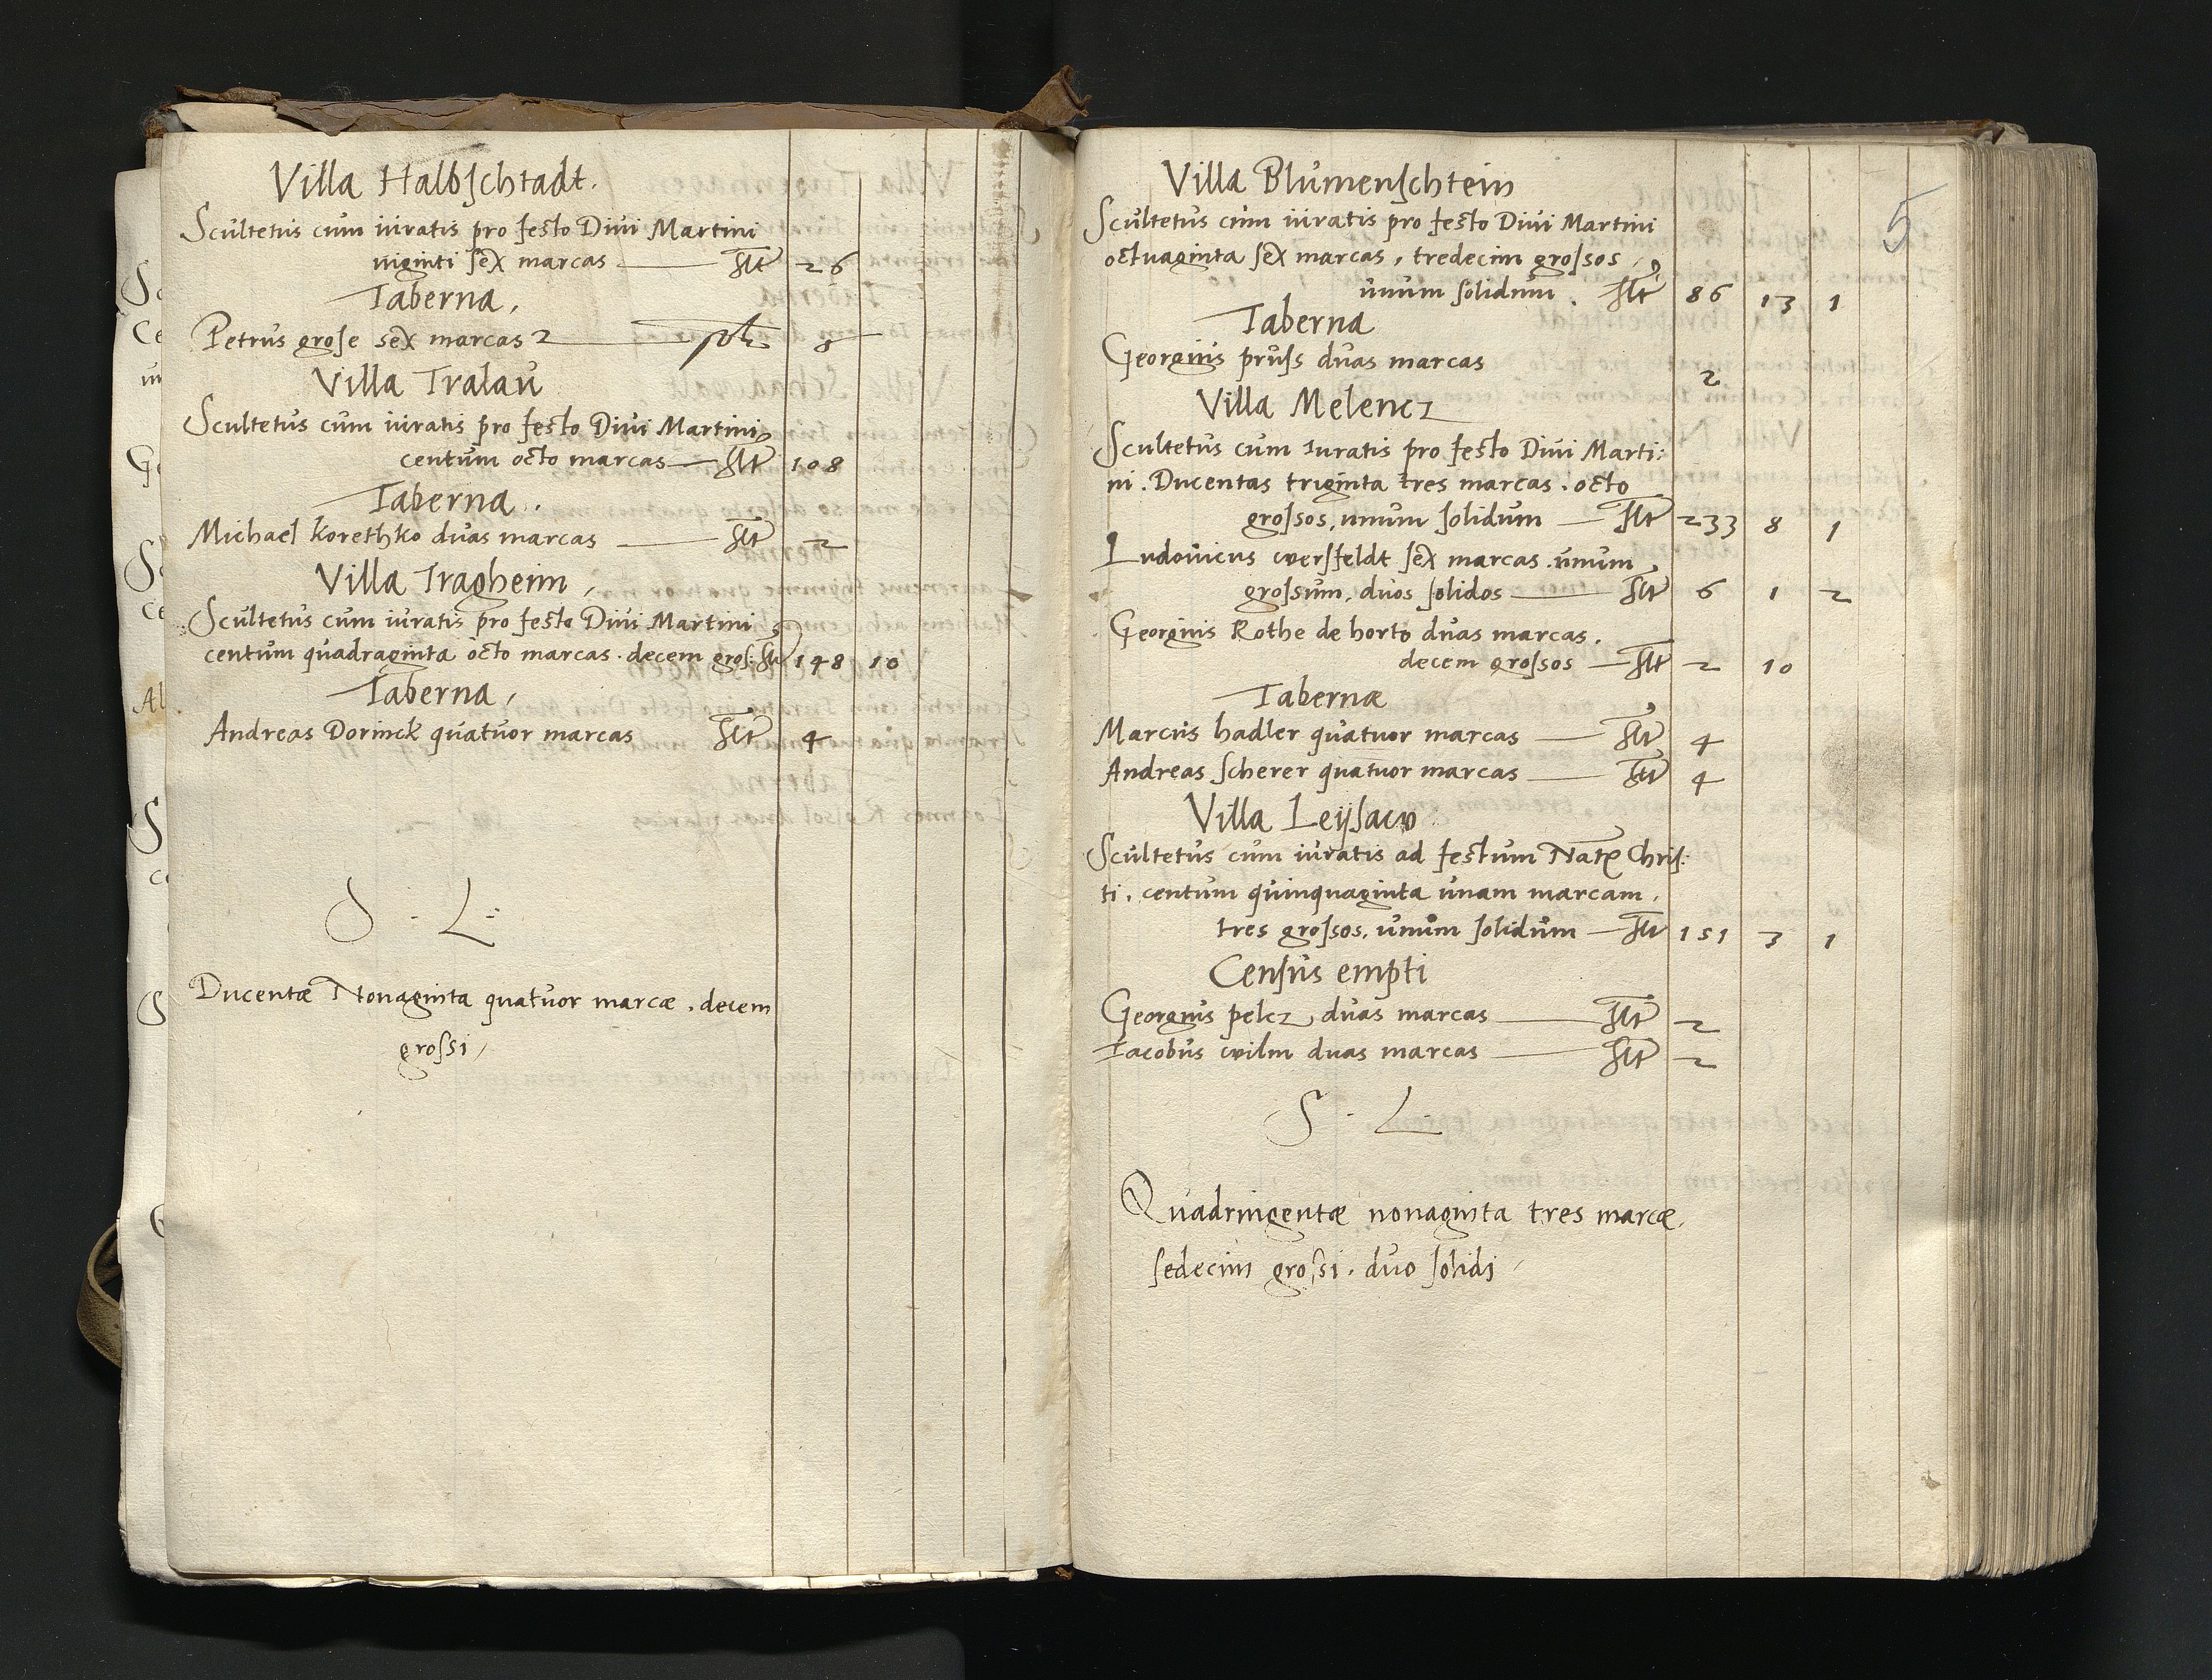 Villa Halbschtadt.
Scultetus cum iuratis pro festo Diui Martini
uiginti sex marcas flt 26
Taberna,
Petrus grose sex marcas 2 8
Villa Tralau
Scultetus cum iuratis pro festo Diui Martini
centum octo marcas flt 108
Taberna.
Michael Korethko duas marcas flt 2
Villa Tragheim,
Scultetus cum iuratis pro festo Diui Martini
centum quadraginta octo marcas. decem gros: flt 148 10
Taberna,
Andreas Dorinck quatuor marcas flt 4
S. L:
Ducentæ Nonaginta quatuor marcæ. decem
grossi,
5
Villa Blumenschtein
Scultetus cum iuratis pro festo Diui Martini
octuaginta sex marcas, tredecim grossos,
unum solidum. flt 86 13 1
Taberna
Georgius pruss duas marcas 2
Villa Melencz
Scultetus cum Iuratis pro festo Diui Marti:
ni. Ducentas triginta tres marcas. octo
grossos, unum solidum flt 233 8 1
Ludouicus wersfeldt sex marcas. unum
grossum, duos solidos flt 6 1 2
Georgius Rothe de horto duas marcas.
decem grossos flt 2 10
Tabernæ
Marcus hadler quatuor marcas flt 4
Andreas Scherer quatuor marcas flt 4
Villa Leijsaw
Scultetus cum iuratis ad festum Nat Chris:
ti. centum quinquaginta unam marcam,
tres grossos, unum solidum flt 151 3 1
Census empti
Georgius pelcz duas marcas flt 2
Iacobus wilm duas marcas flt 2
S. L.
Quadringentæ nonaginta tres marcæ,
sedecim grossi. duo solidi